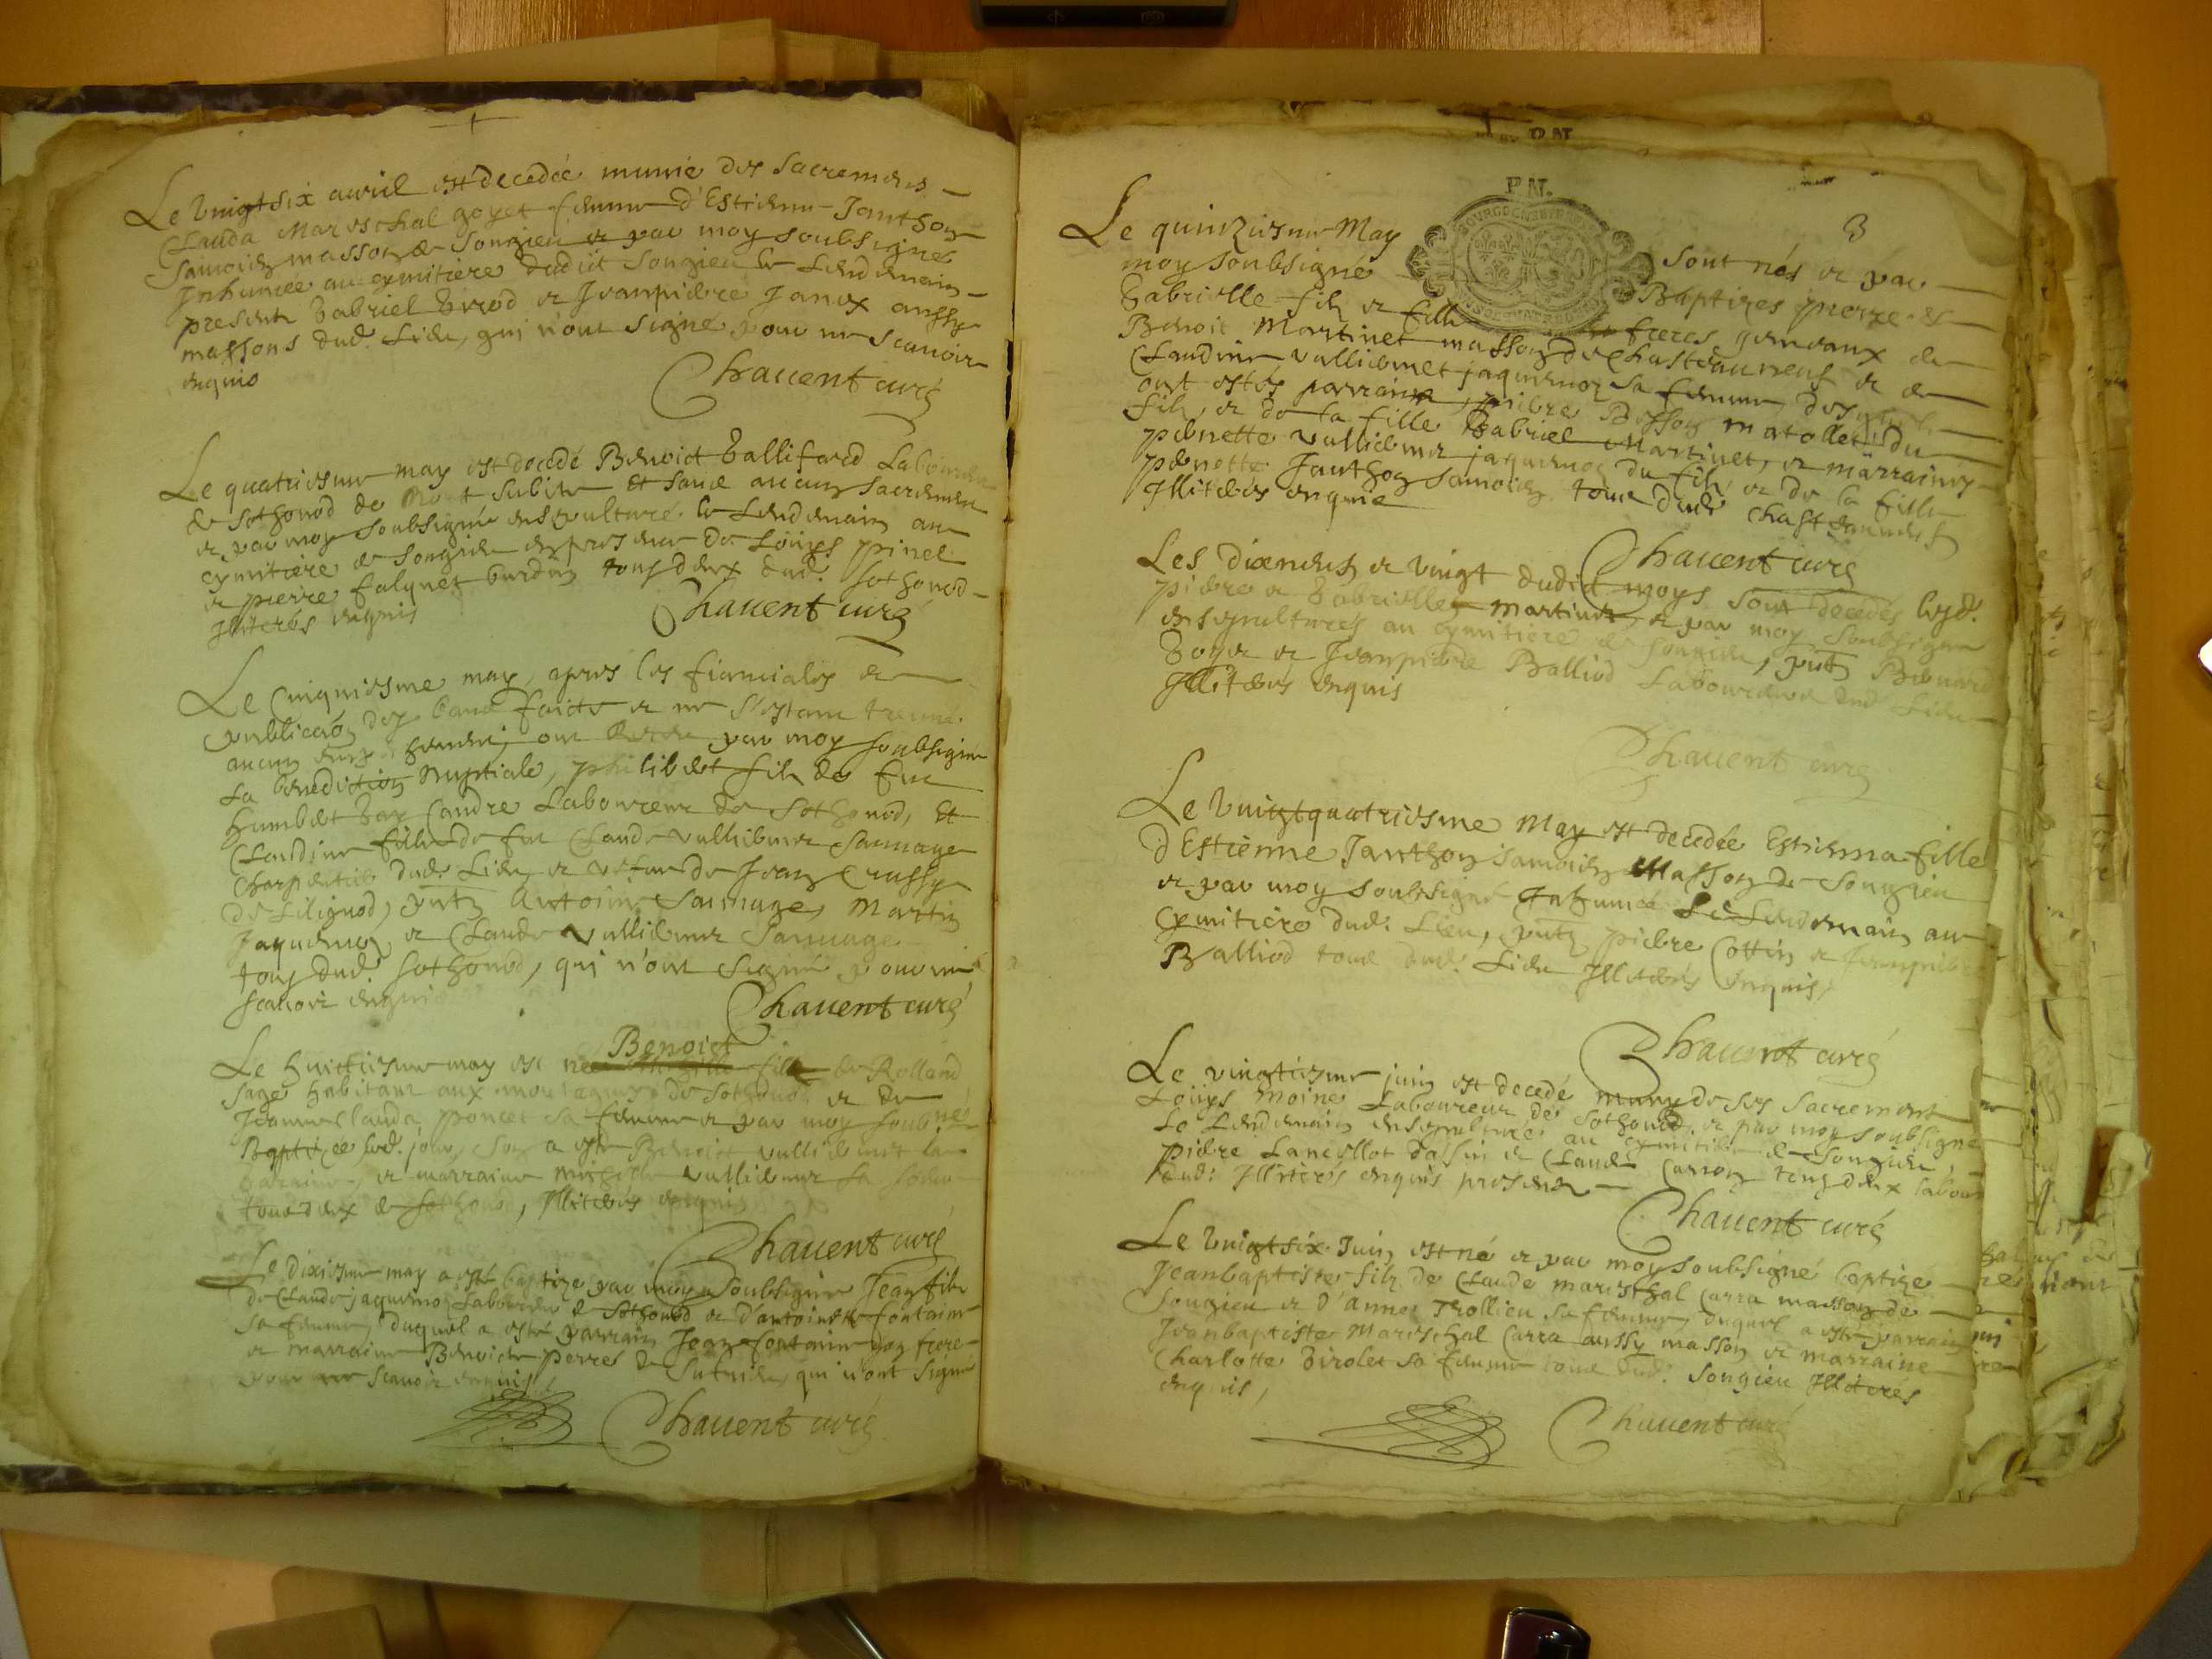 Le vingtsix avril est decedée munie des sacremens
Clauda Mareschal goyet femme d'Estienne Janthon
Samoien masson de Songieu et par moy soubsigné
Inhumée au cymitiere dudit Songieu le lendemain
presents Gabriel et Jeanpierre Janex aussy
massons dud. Lieu, qui n'ont signé pour ne scavoir
enquis
Chavent curé
Le quatriesme may est decedé Benoict Gallifard Laboureur
de Sothonod de Mort subite et sans aucun sacrement
et par moy soubsigné ensepulturé le Lendemain au
cymitiere de Songieu en presence de Louys pinel
et pierre falquet burdin tous deux dud. Sothonod
Jlliterés enquis
Chavent curé
Le Cinquiesme may, apres les fiancialles et
publicaon des bans faicts et ne s'estant treuvé
aucun ont par moy soubsigné
La benediction Nuptiale, philibert fils de feu
humbert Gay Candre Laboureur de Sothonod, Et
Claudine fille de feu Claude vulliemet Sauvage
Charpentier dud. Lieu et vefve de Jean Crussy
de Lilignod, pnts Antoine Sauvage, Martin
Jaquemoz et Claude vulliemet Sauvage
tous dud. Sothonod, qui n'ont signé pour ne
scavoir enquis
Chavent curé
Benoict
Le huictiesme may est né fils de Rolland
Sage habitant aux montagnes de Sothonod et de
Jeanne Clauda poncet sa femme et par moy soubsigné
Baptizée led. jour, son a esté Benoict vulliemet
parrain, et marraine vulliemet sa soeur
tous deux de Sothonod, Illiterés enquis
Chavent curé
Le dixiesme may a esté baptizé par moy soubsigné Jean fils
de Claude jaquemoz Laboureur de Sothonod et d'antoinette fontaine
sa femme, duquel a esté parrain Jean fontaine son frere
et marraine Benoicte perret de Sutrieu, qui n'ont signé
pour ne scavoir enquis
Chavent curé
P.N.
3
Le quinziesme May sont nés et par
moy soubsigné Baptizes pierre et
Gabrielle fils et fille freres gemeaux de
Benoit Martinet masson de Chasteauneuf et de
Claudine vulliemet jaquemoz sa femme, desquels
ont estés parrains, pierre Besson matollet du
fils, et de la fille Gabriel Martinet, et marraines
pernette vulliemet jaquemoz du fils et de la fille
pernette Janthon Samoien tous dud. Chasteauneuf
Jlliterés enquis
Chavent curé
Les dixneuf et vingt dudict moys sont decedés lesd.
pierre et Gabrielle Martinet, et par moy soubsigné
ensepulturés au cymitiere de Songieu, pnts Bernard
Goyet et Jeanpierre Balliod Laboureurs dud. Lieu
Jlliterés enquis
Chavent curé
Le vingtquatriesme May est decedée Estienna fille
d'Estienne Janthon Samoien Masson de Songieu
et par moy soubsigné Inhumée Le Lendemain au
Cymitiere dud. Lieu, pnts pierre Cottin et Jeanpierre
Balliod tous dud. Lieu Jlliterés enquis,
Chavent curé
Le vingtiesme juin est decedé muny de ses sacrement
Louys Moine Laboureur de Sothonod, et par moy soubsigné
Le Lendemain ensepulturé au cymitiere de Songieu,
pierre Lancellot dassin et Claude Carron tous deux labour
dud: Jlliterés enquis presents
Chavent curé
Le vingtsix Juin est né et par moy soubsigné baptizé
Jeanbaptiste filz de Claude mareschal Carra masson de
Songieu et d'Anne Trollieu sa femme, duquel a esté parrain
Jeanbaptiste Mareschal Carra aussy masson et marraine
Charlotte Girolet sa femme tous dud. Songieu Jlliterés
enquis,
Chavent curé